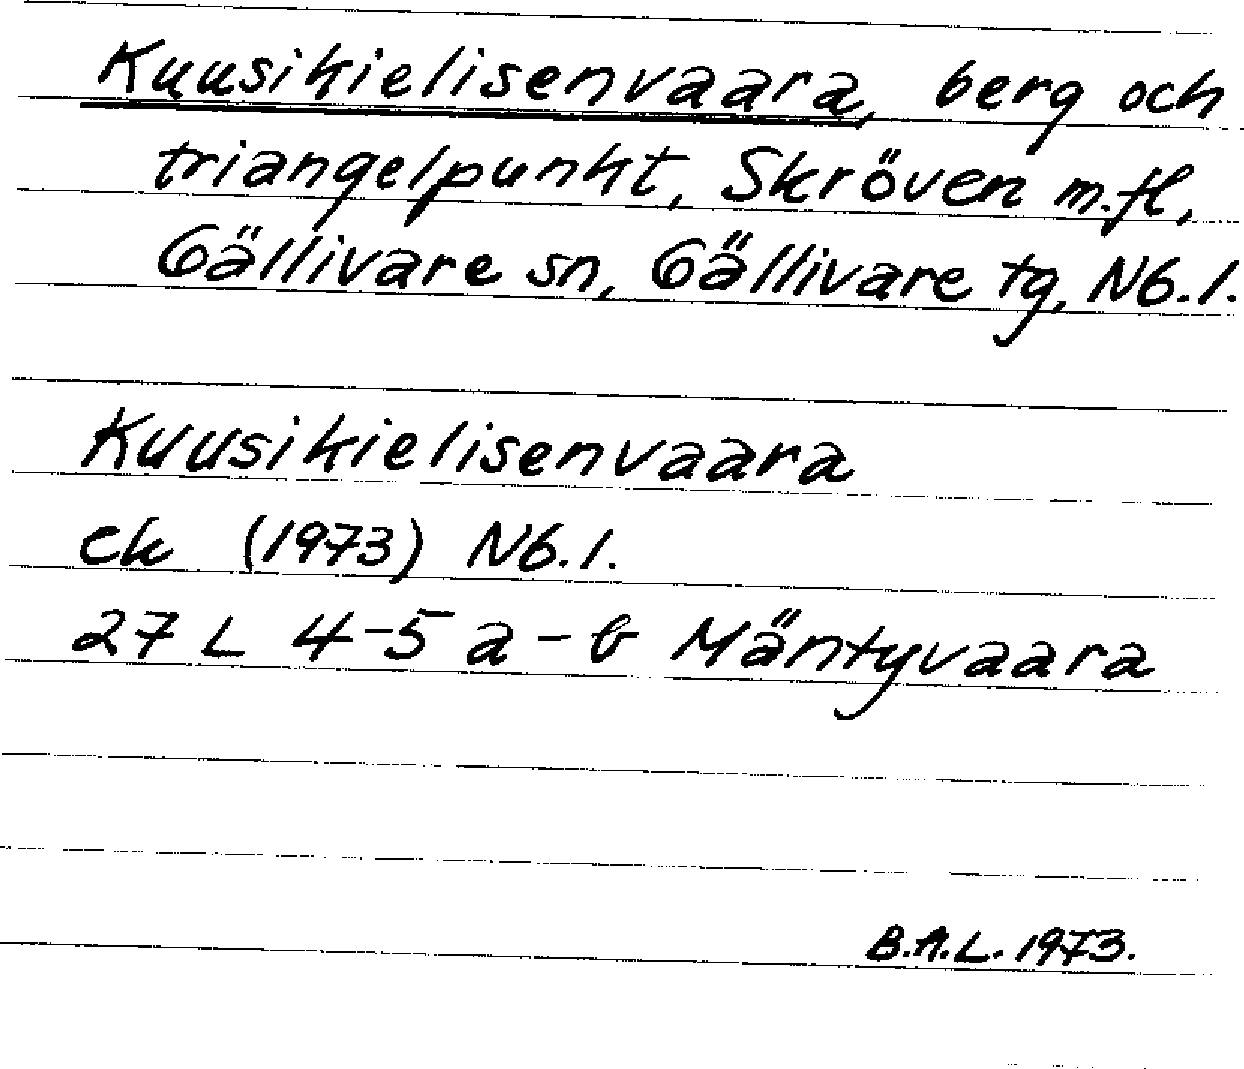 Kuusikielisenvaara, berg och
triangelpunkt, Skröven m.fl,
Gällivare sn, Gällivare tg, Nb.l.
Kuusikielisenvaara
ek (1973) Nb.l.
27 L 4-5 a-b Mäntyvaara
B.A.L. 1973.